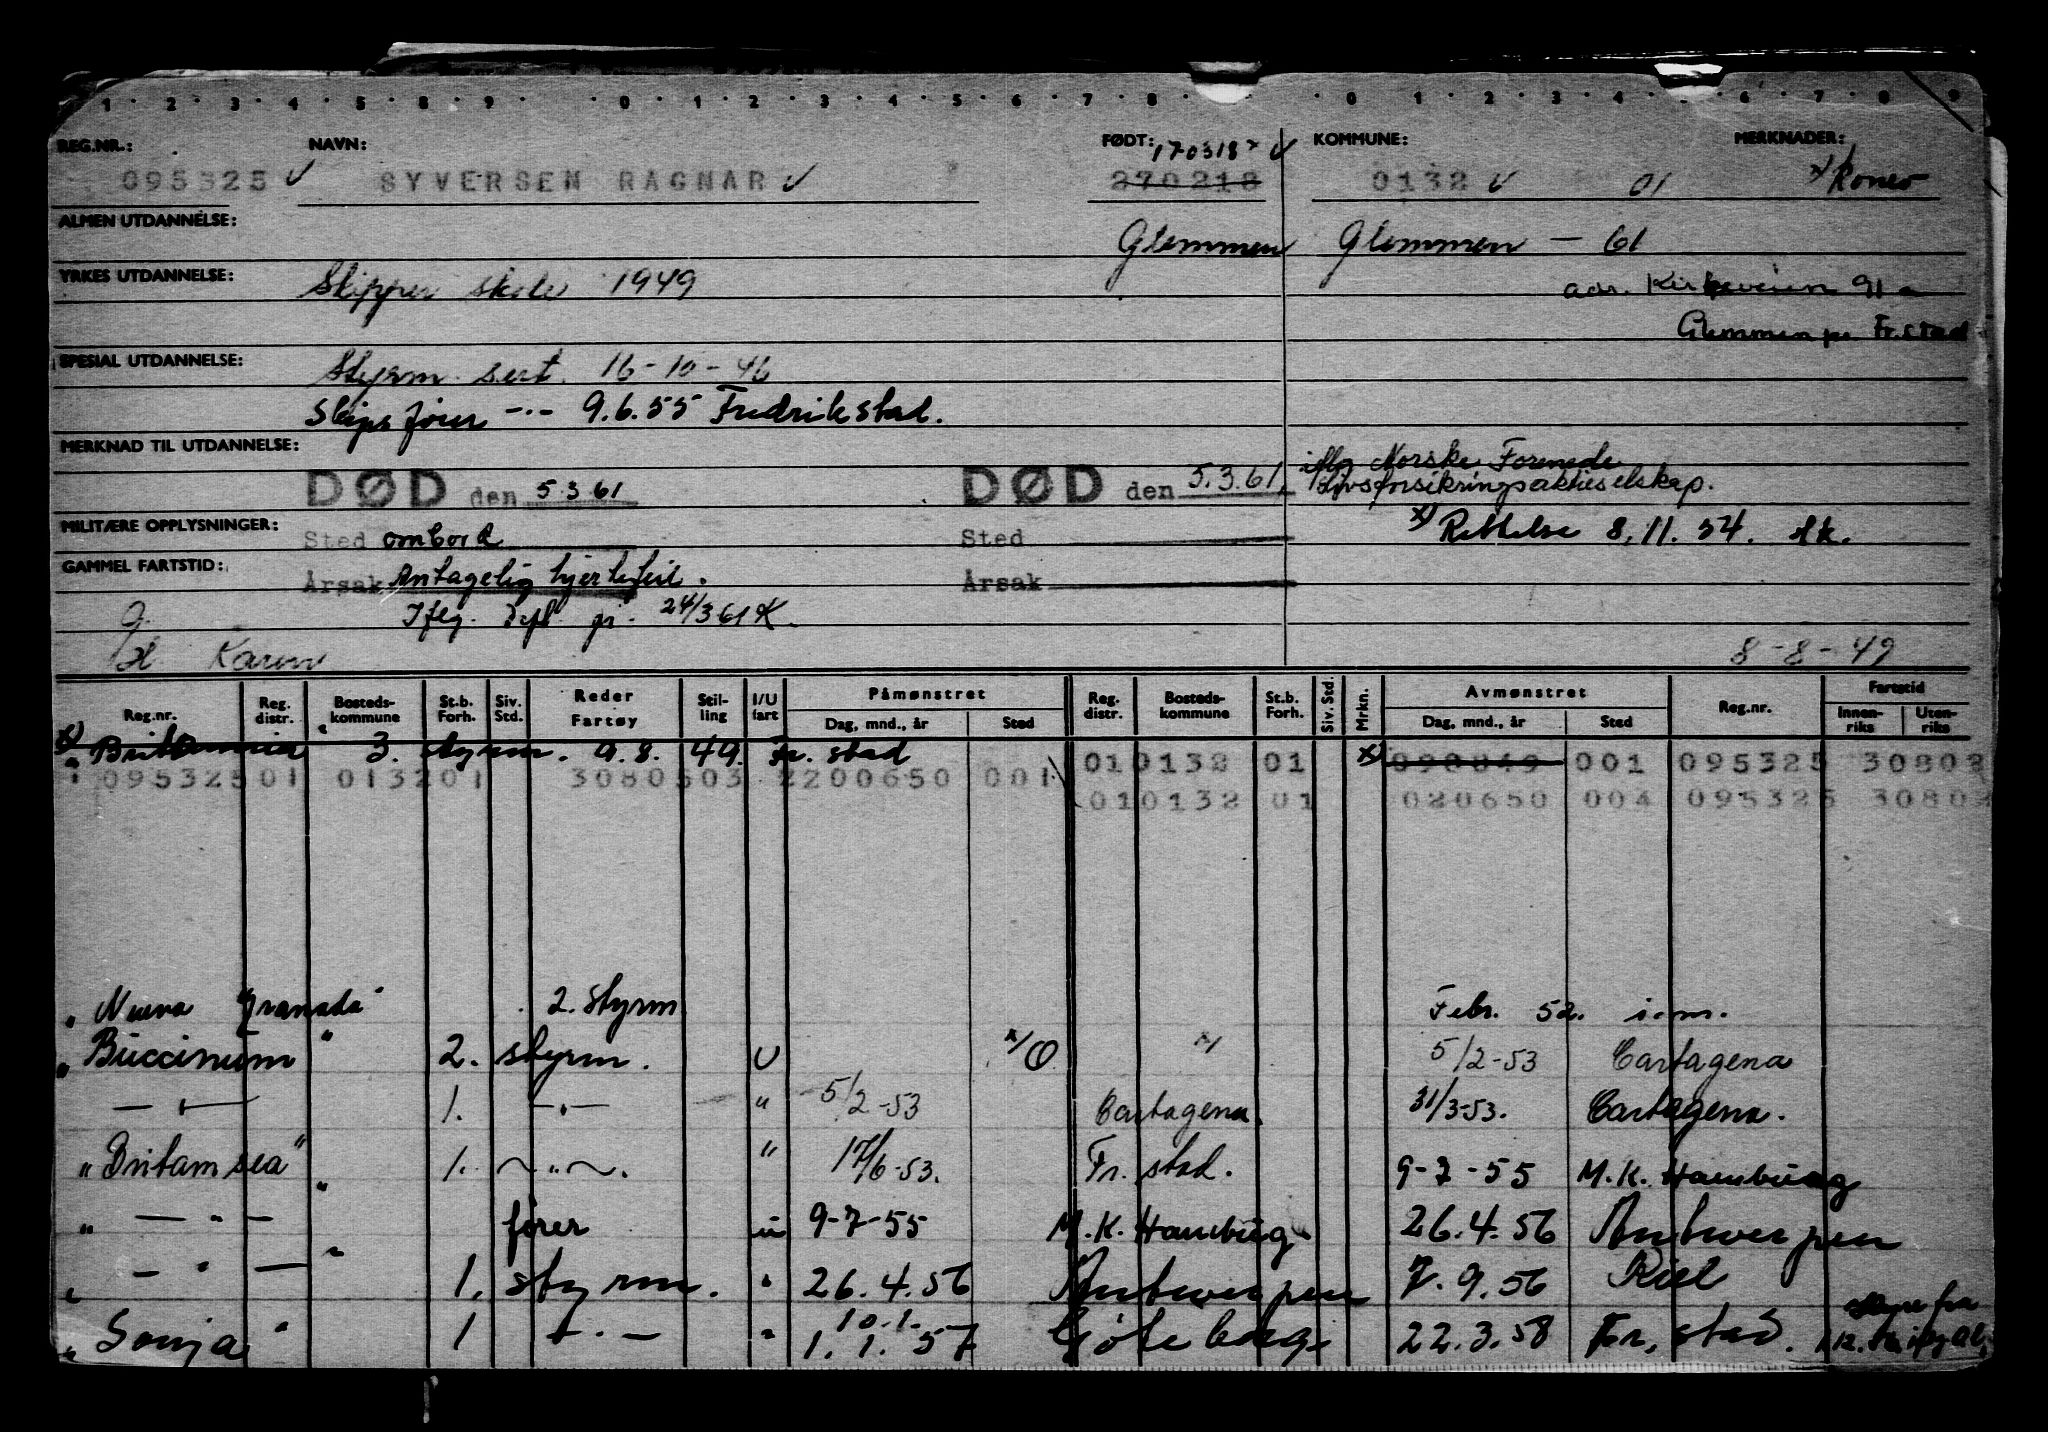 1 · 2 · 3 · 4 · 5 · 8 · 9 · · 0 · 1 · 2 · 3 · 4 · 5 · 6 · 7 · 8 · · 0 · 1 · 2 · 3 · 4 · 6 · 7 · 8 · 9
REG.NR.: NAVN: FØDT: 170318 x ✓ KOMMUNE: MERKNADER:
095325 ✓ SYVERSEN RAGNAR ✓ 270218 0132 ✓ 01 x)
ALMEN UTDANNELSE: Glemmen Glemmen — 61
YRKES UTDANNELSE: Skipper skole 1949 adr. Kirkeveien 91 a
Glemmen pr Fr.stad
SPESIAL UTDANNELSE: Styrm. sert. 16-10-46
Skipsfører —·— 9.6.55 Fredrikstad.
MERKNAD TIL UTDANNELSE: iflg Norske Forenede
DØD den 5.3.61 DØD den 5.3.61. Livsforsikringsaktieselskap.
MILITÆRE OPPLYSNINGER: x) Rettelse 8.11.54.
Sted ombord Sted
GAMMEL FARTSTID:
Årsak Antagelig hjertefeil. Årsak
Iflg. 24/3 61 K.
Karen 8-8-49
Reg.nr. Reg. distr. Bosteds-kommune St.b. Forh. Siv. Std. Reder Fartøy Stil-ling I/U fart Påmønstret Dag, mnd., år Sted Reg. distr. Bosteds-kommune St.b. Forh. Siv. Std. Mrkn. Avmønstret Dag, mnd., år Sted Reg.nr. Fartstid Innen-riks Uten-riks
x) " Britannia " 3. styrm. 9.8.49. Fr.stad 01 0132 01 x) 090849 001 095325 30802
095325 01 0132 01 3080503 2200650 001 01 0132 01 020650 004 095325 30802
" Nueva Granada " 2. styrm Febr. 52. i.m.
" Buccinum " 2. styrm. U 5/2-53 Cartagena
— " — 1. — " — " 5/2-53 Cartagena. 31/3-53. Cartagena.
" Britamsea " 1. — " —. " 17/6-53. Fr.stad. 9-7-55 M.K. Hamburg
" — " — " fører u 9-7-55 M.K. Hamburg 26.4.56 Antwerpen
" — " — " 1. styrm. " 26.4.56 Antwerpen 7.9.56 Kiel
10.1.
" Sonja " 1 — " — " 1.1.57 Göteborg 22.3.58 Fr.stad.